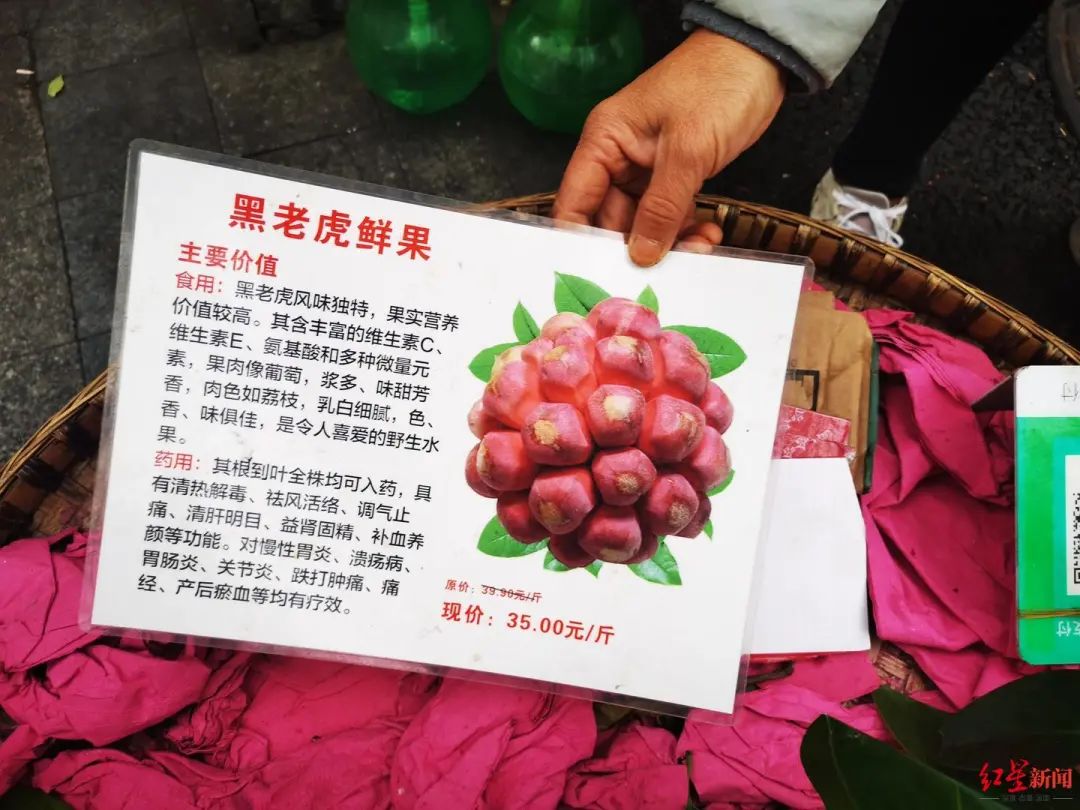 黑老虎鲜果
主要价值
食用：黑老虎风味独特，果实营养
价值较高。其含丰富的维生素C、
维生素E、氨基酸和多种微量元
素，果肉像葡萄，浆多、味甜芳
香，肉色如荔枝，乳白细腻，色、
香、味俱佳，是令人喜爱的野生水
果。
药用：其根到叶全株均可入药，具
有清热解毒、祛风活络、调气止
痛、清肝明目、益肾固精、补血养
颜等功能。对慢性胃炎、溃疡病、
胃肠炎、关节炎、跌打肿痛、痛
经、产后瘀血等均有疗效。
原价：39.90元/斤
现价：35.00元/斤
红星新闻